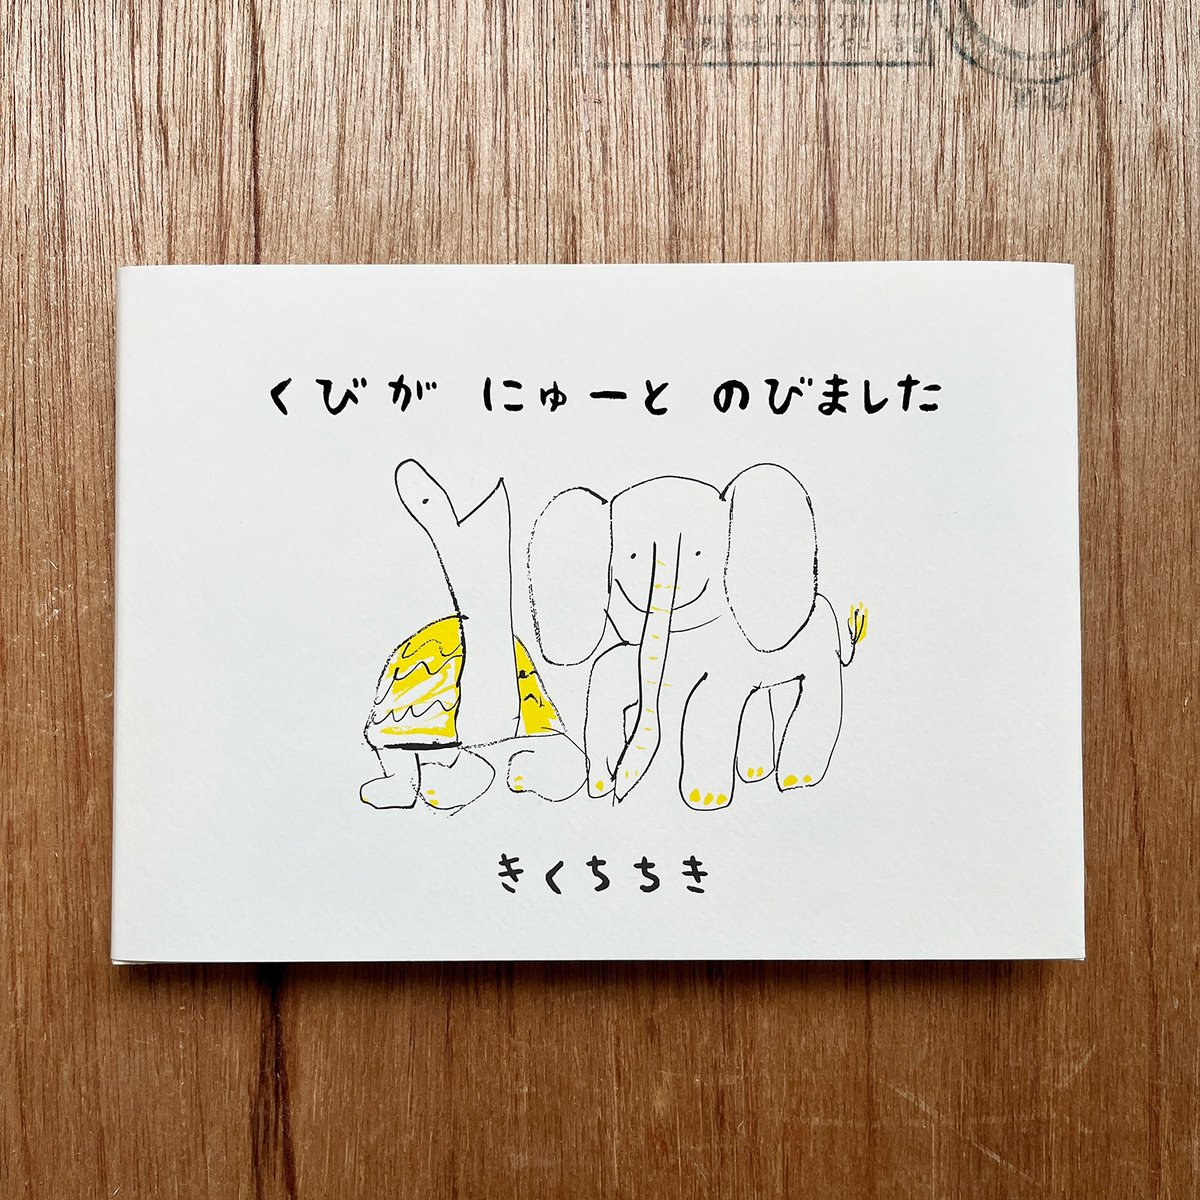 くびが にゅーと のびました
きくちちき